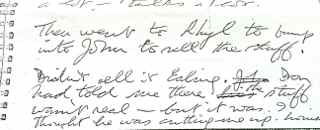 a lot – talks a lot.
Then went to Rhyl to bump
into John to sell the stuff.
Didn't sell it Eating. Day
had told me there the stuff
wasn't real – but it was. I
thought he was cutting me up.